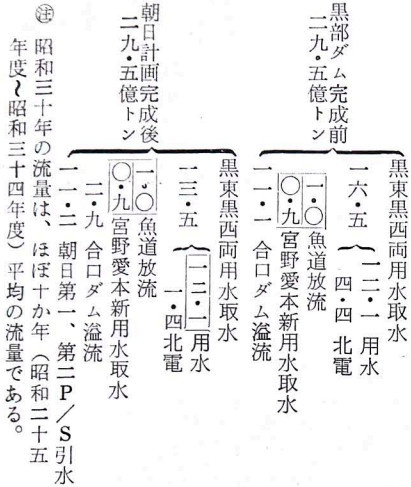 黒部ダム完成前
二九・五億トン
黒東黒西両用水取水
一六・五
一二・一 用水
四・四 北電
一・〇 魚道放流
〇・九 宮野愛本新用水取水
一一・一 合口ダム溢流
朝日計画完成後
二九・五億トン
黒東黒西両用水取水
一三・五
一二・一 用水
一・四 北電
一・〇 魚道放流
〇・九 宮野愛本新用水取水
二・九 合口ダム溢流
一一・二 朝日第一、第二P/S引水
㊟ 昭和三十年の流量は、ほぼ十か年（昭和二十五
年度〜昭和三十四年度）平均の流量である。